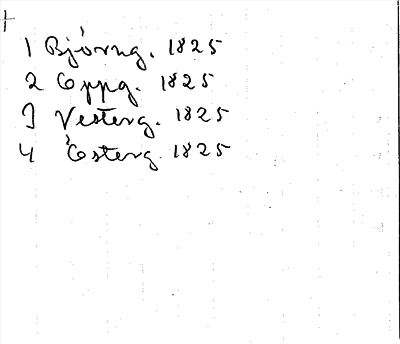 1 Bjórng. 1825
2 Oppg. 1825
3 Vesterg. 1825
4 Ósterg. 1825